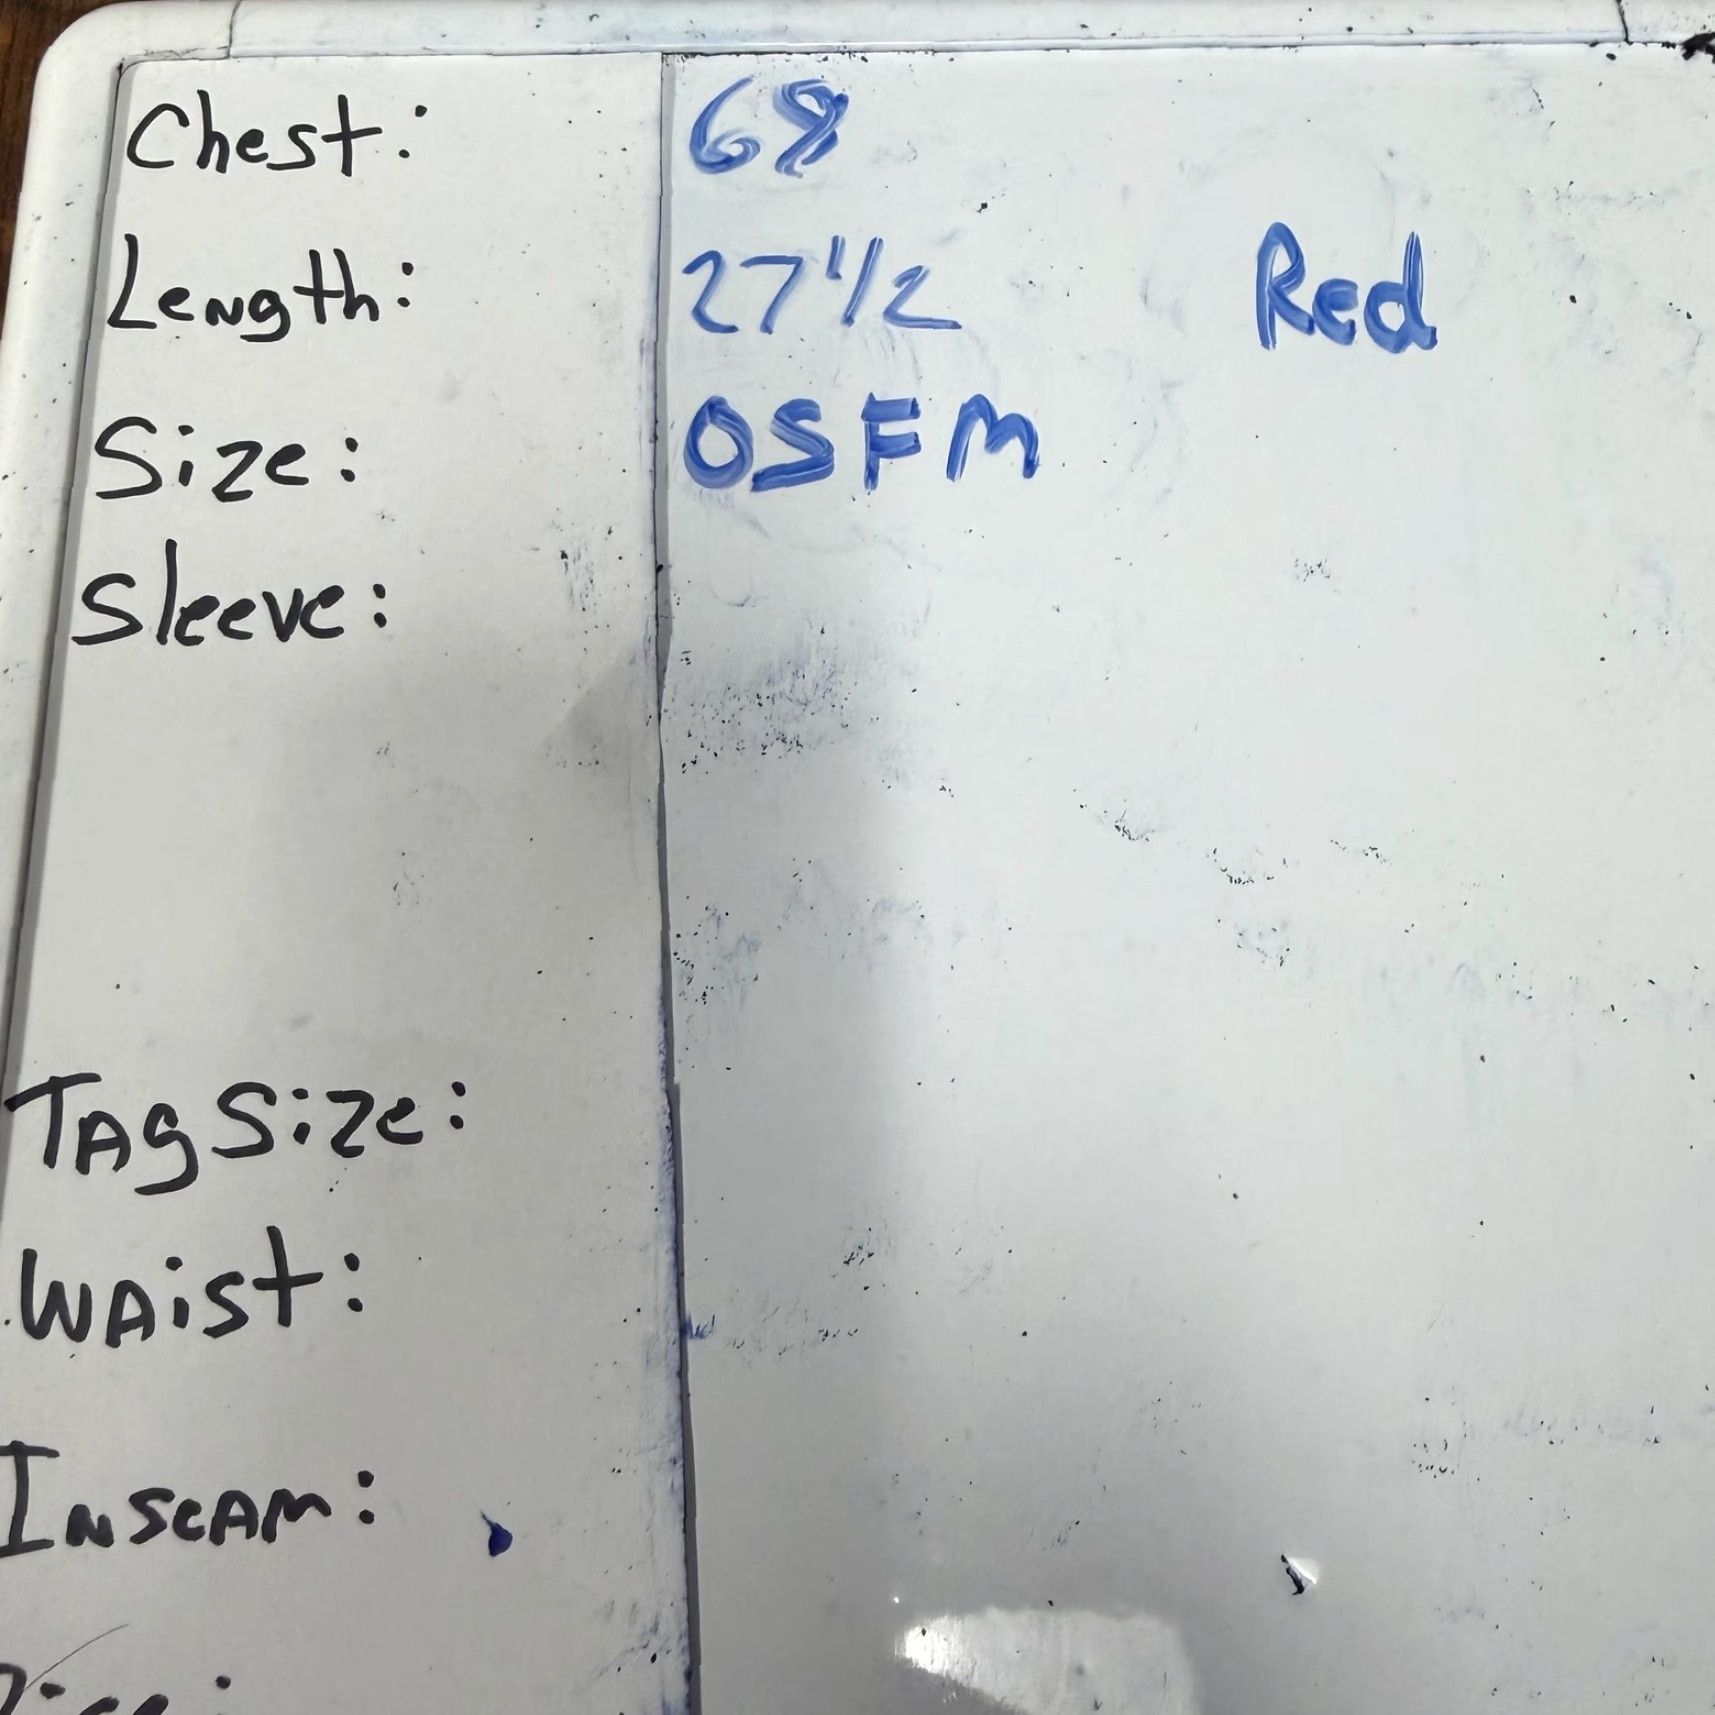 Chest: 68
Length: 27 1/2 Red
Size: OSFM
Sleeve:
Tag Size:
Waist:
Inseam: